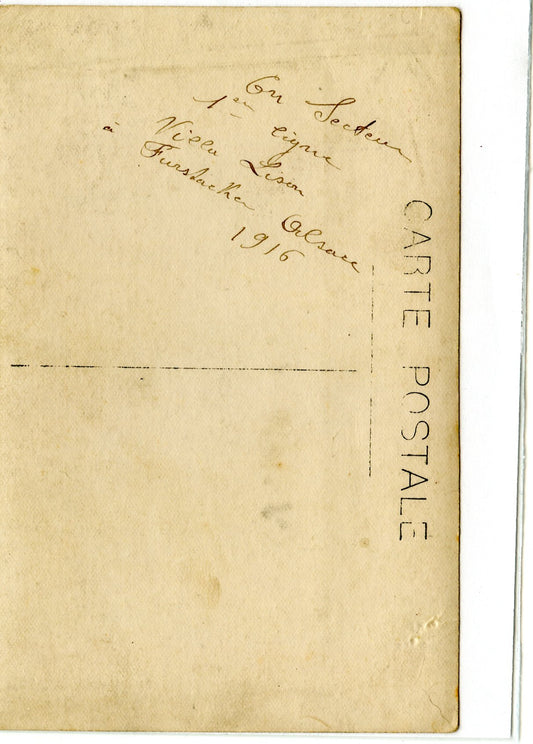 En Secteur
1ère ligne
Villa Lison
à Furstacker Alsace
1916
CARTE POSTALE